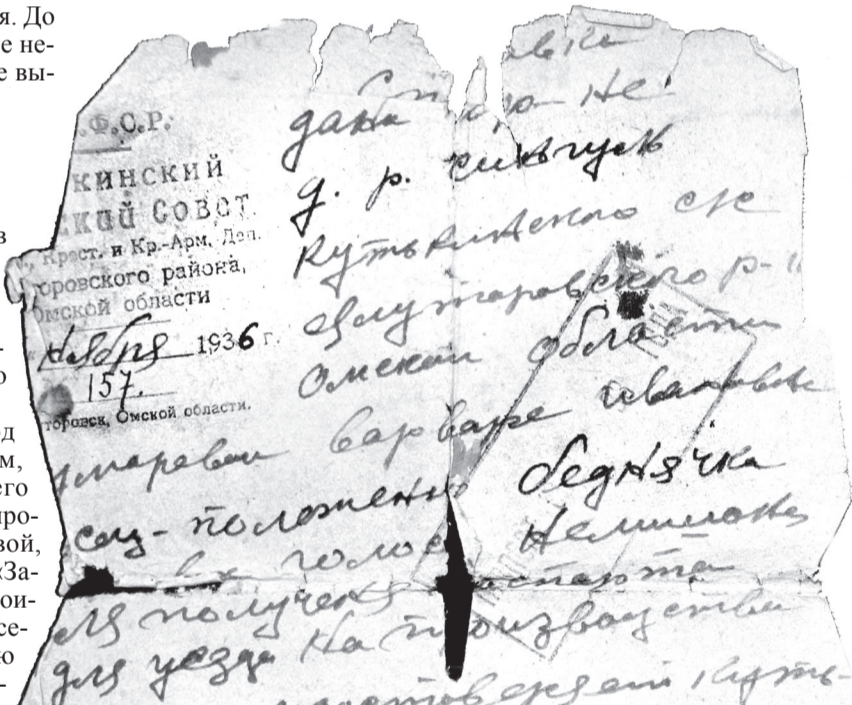 я. До
е не-
е вы-
в
-
о
од
м,
его
про-
вой,
«За-
ои-
се-
ю
-
.Ф.С.Р.
КИНСКИЙ
СКИЙ СОВЕТ
Крест. и Кр.-Арм. Деп.
торовского района,
Омской области
Ноября 1936 г.
157.
торовск, Омской области.
авка
дана
д. р. Сингуль
Кутькинского с/с
Ялуторовского р-н
Омской области
Варваре Ивановне
соц-положение беднячка
голоса Не
для получения паспорта
для уезда На производства
Куть-